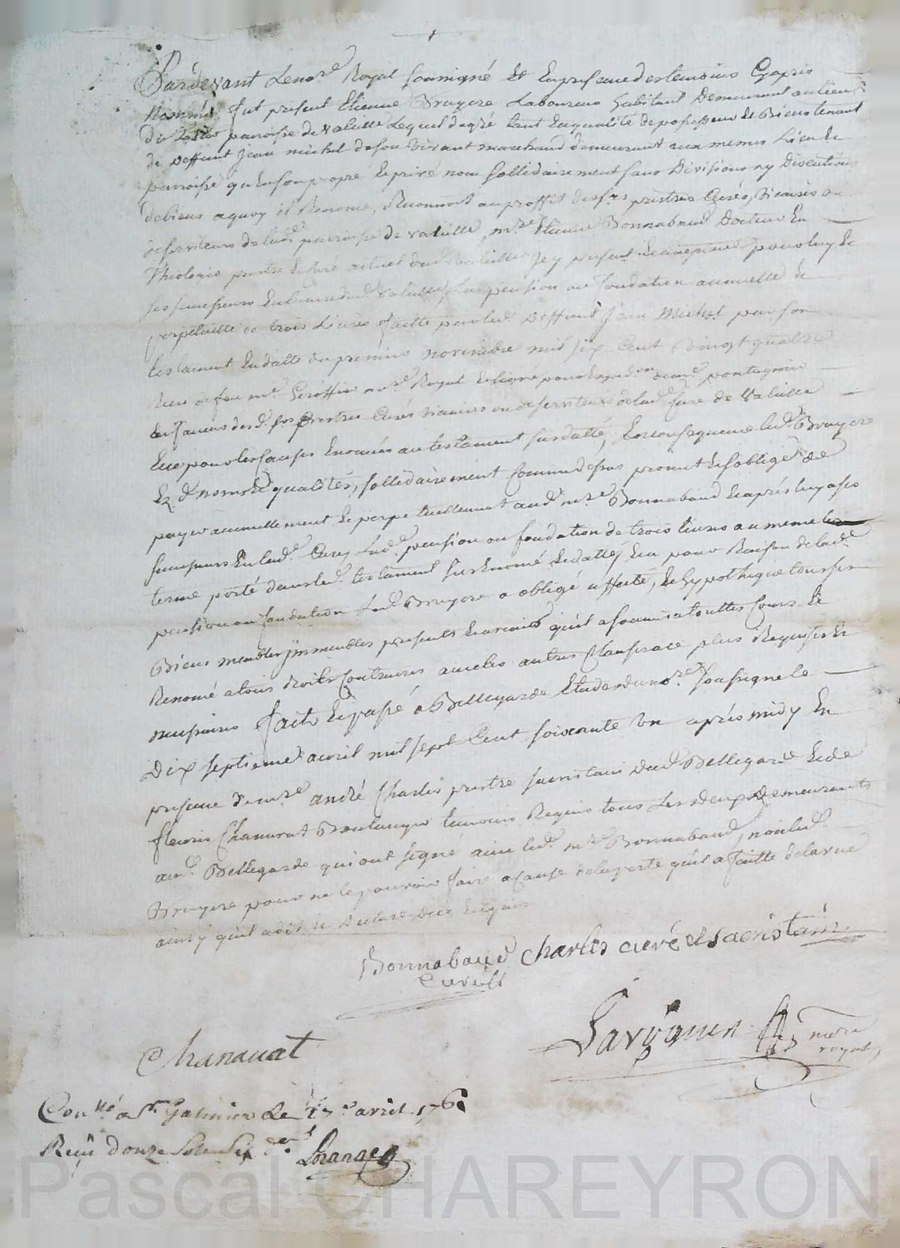 Pardevant Le no.re Royal Soussigné Et En presence des temoins Cy apris
Nommés fut présent Etienne Bruyere Laboureur habitant Demeurant au lieu
paroisse de valeille Lequel de gré tant En qualité de possesseur Et Biens tenant
de deffunt Jean Michel de son Vivant marchand demeurant aux memes Lieu Et
parroisse qu'En son propre Et privé nom sollidairement sans Divisions ny Discutions
de biens a quoy il Renonce, au proffit des s.rs prestres Curés, Vicaires ou
desserviteurs de lad.e parroisse de valeille, m.re Etienne Bonnabaud Docteur En
Théologie prestre Et Curé actuel dud. valeille Icy present Et acceptant pour luy Et
ses successeurs valeille, La pension ou fondation annuelle Et
perpétuelle de trois Livres faitte par led. Deffunt Jean Michel par son
testament En datte du premier novembre mil six Cent Vingt quatre
Receu de feu m.e no.re Royal
En faveur desd. s.rs Prestres Curés Vicaires ou desserviteurs de lad. Cure de Valeille
Et ce pour les Causes Enoncées au testament susdatté, En consequence led. Bruyere
Esd. noms Et qualités, sollidairement Comme dessus promet Et s'oblige de
payer annuellement Et perpetuellement aud. m.re Bonnabaud Et après luy a ses
successeurs En lad. Cure, lad. pension ou fondation de trois livres au meme
terme porté dans led. testament Surénomé Et datté, Et a pour Raison de lad.e
pension ou fondation led. Bruyere a obligé affecté, Et hypothequé tous ses
Biens meubles immeubles presents Et avenir qu'il a soumis a touttes Cours Et
Renoncé a tous droits Contraires avec les autres Clauses ace plus Requises Et
necessaires fait Et passé à Bellegarde Etude du no.re soussigné le
Dix septieme avril mil sept Cent soixante Un après midy En
presence de m.re andré Charles prestre sacristain dud. Bellegarde Et de
fleurie Chanavat Boulanger temoins Requis tous Les deux Demeurants
aud. Bellegarde qui ont signé avec led. m.re Bonnabaud, non led.
Bruyere pour ne le pouvoir faire a Cause de la perte qu'il a faitte de la vue
ainsy qu'il a dit Et Declaré De ce Enquis
Bonnabaud Charles curé et sacristain
Curé
no.re
royal
Chanavat
Con.llé a S.t Galmier Le 17.e avril 1761
Reçu douze sols six d.ers
Pascal CHAREYRON